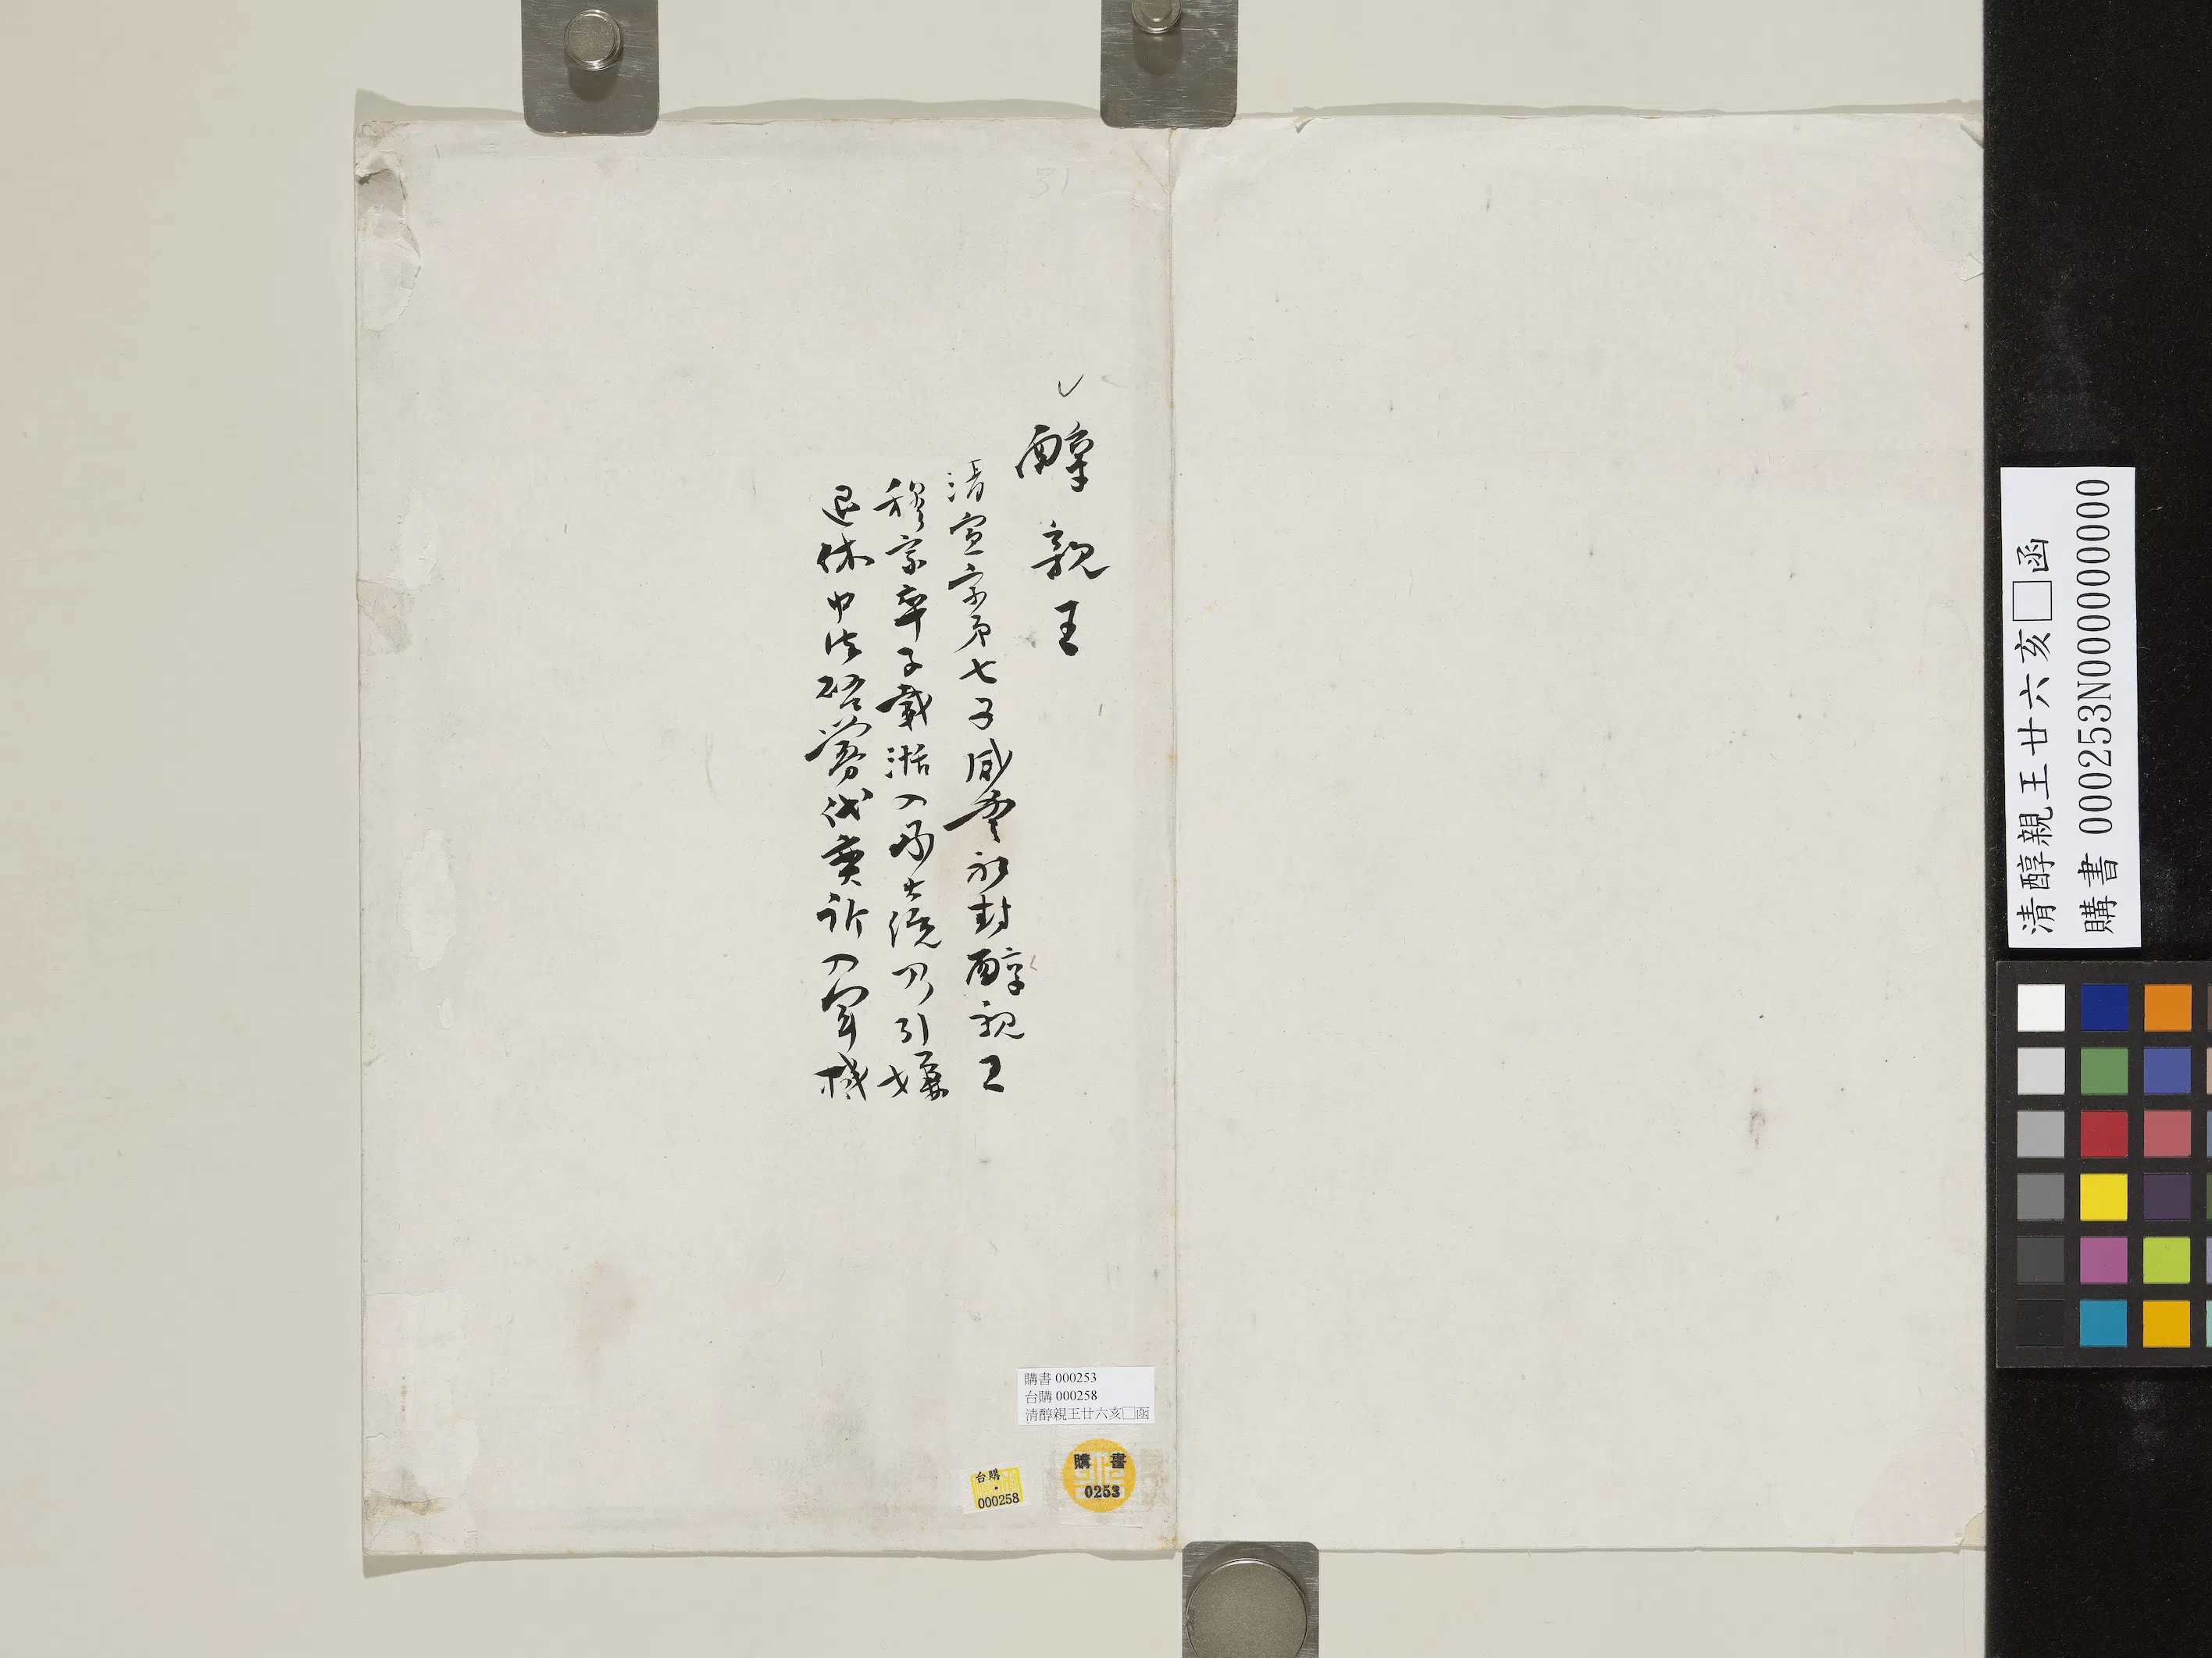 31
醇親王
清宣宗第七子咸豐初封醇親王
穆宗卒子載湉入承大統乃引嫌
退休中法啓釁代奕訢入軍機
購書 000253
台購 000258
清醇親王廿六亥□函
台購
000258
購書
0253
清醇親王廿六亥□函
購書 000253N000000000